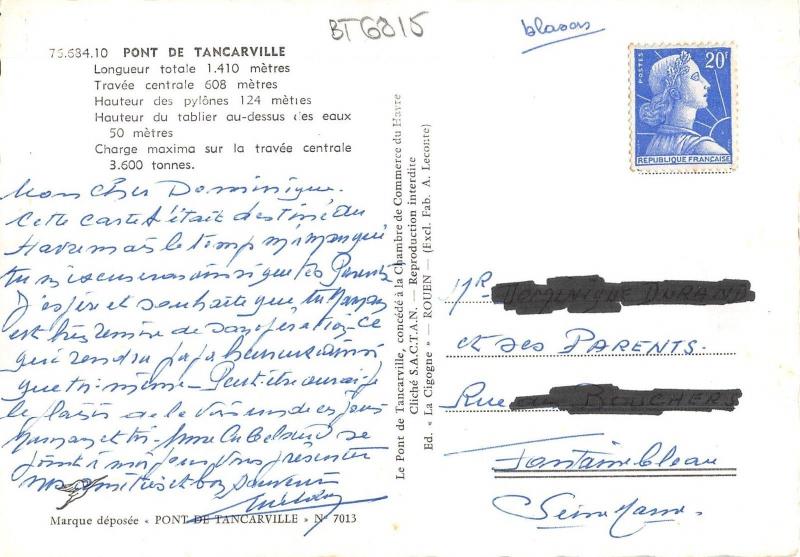 BT6815
blasons
75.684.10 PONT DE TANCARVILLE
Longueur totale 1.410 mètres
Travée centrale 608 mètres
Hauteur des pylônes 124 mètres
Hauteur du tablier au-dessus des eaux
50 mètres
Charge maxima sur la travée centrale
3.600 tonnes.
Mon cher Dominique.
Cette carte t'était destinée du
Havre mais le temps m'a manqué
tu m'excuseras ainsi que tes Parents
J'espère et souhaite que ta Maman
est très remise de son opération - ce
qui rendra papa heureux ainsi
que toi même - Peut-être aurai je
le plaisir de le voir un de ces jours
Maman et toi - Mme se
joint à moi pour vous présenter
nos amitiés et bon souvenir
Marque déposée « PONT DE TANCARVILLE » N° 7013
Le Pont de Tancarville, concédé à la Chambre de Commerce du Havre
Cliché S.A.C.T.A.N. — Reproduction interdite
Ed. « La Cigogne » — ROUEN — (Excl. Fab. A. Leconte)
POSTES
20F
REPUBLIQUE FRANÇAISE
Mr
et ses PARENTS.
Rue BOUCHERS
Fontainebleau
Seine Marne.